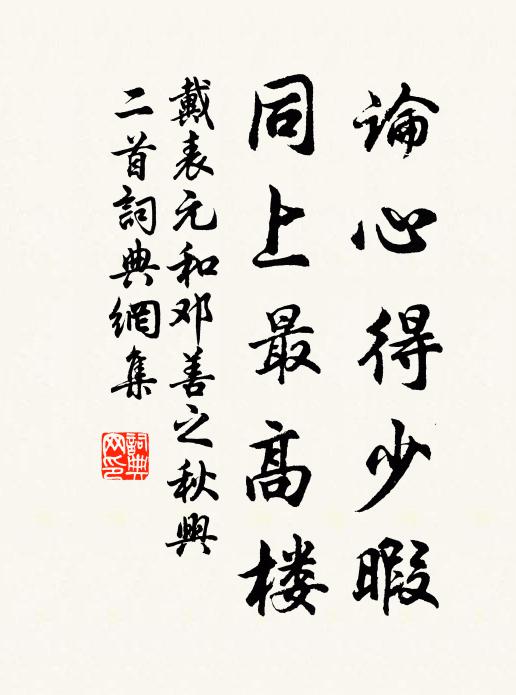 論心得少暇
同上最高楼
戴表元和邓善之秋興
二首詞典網集
詞典网印